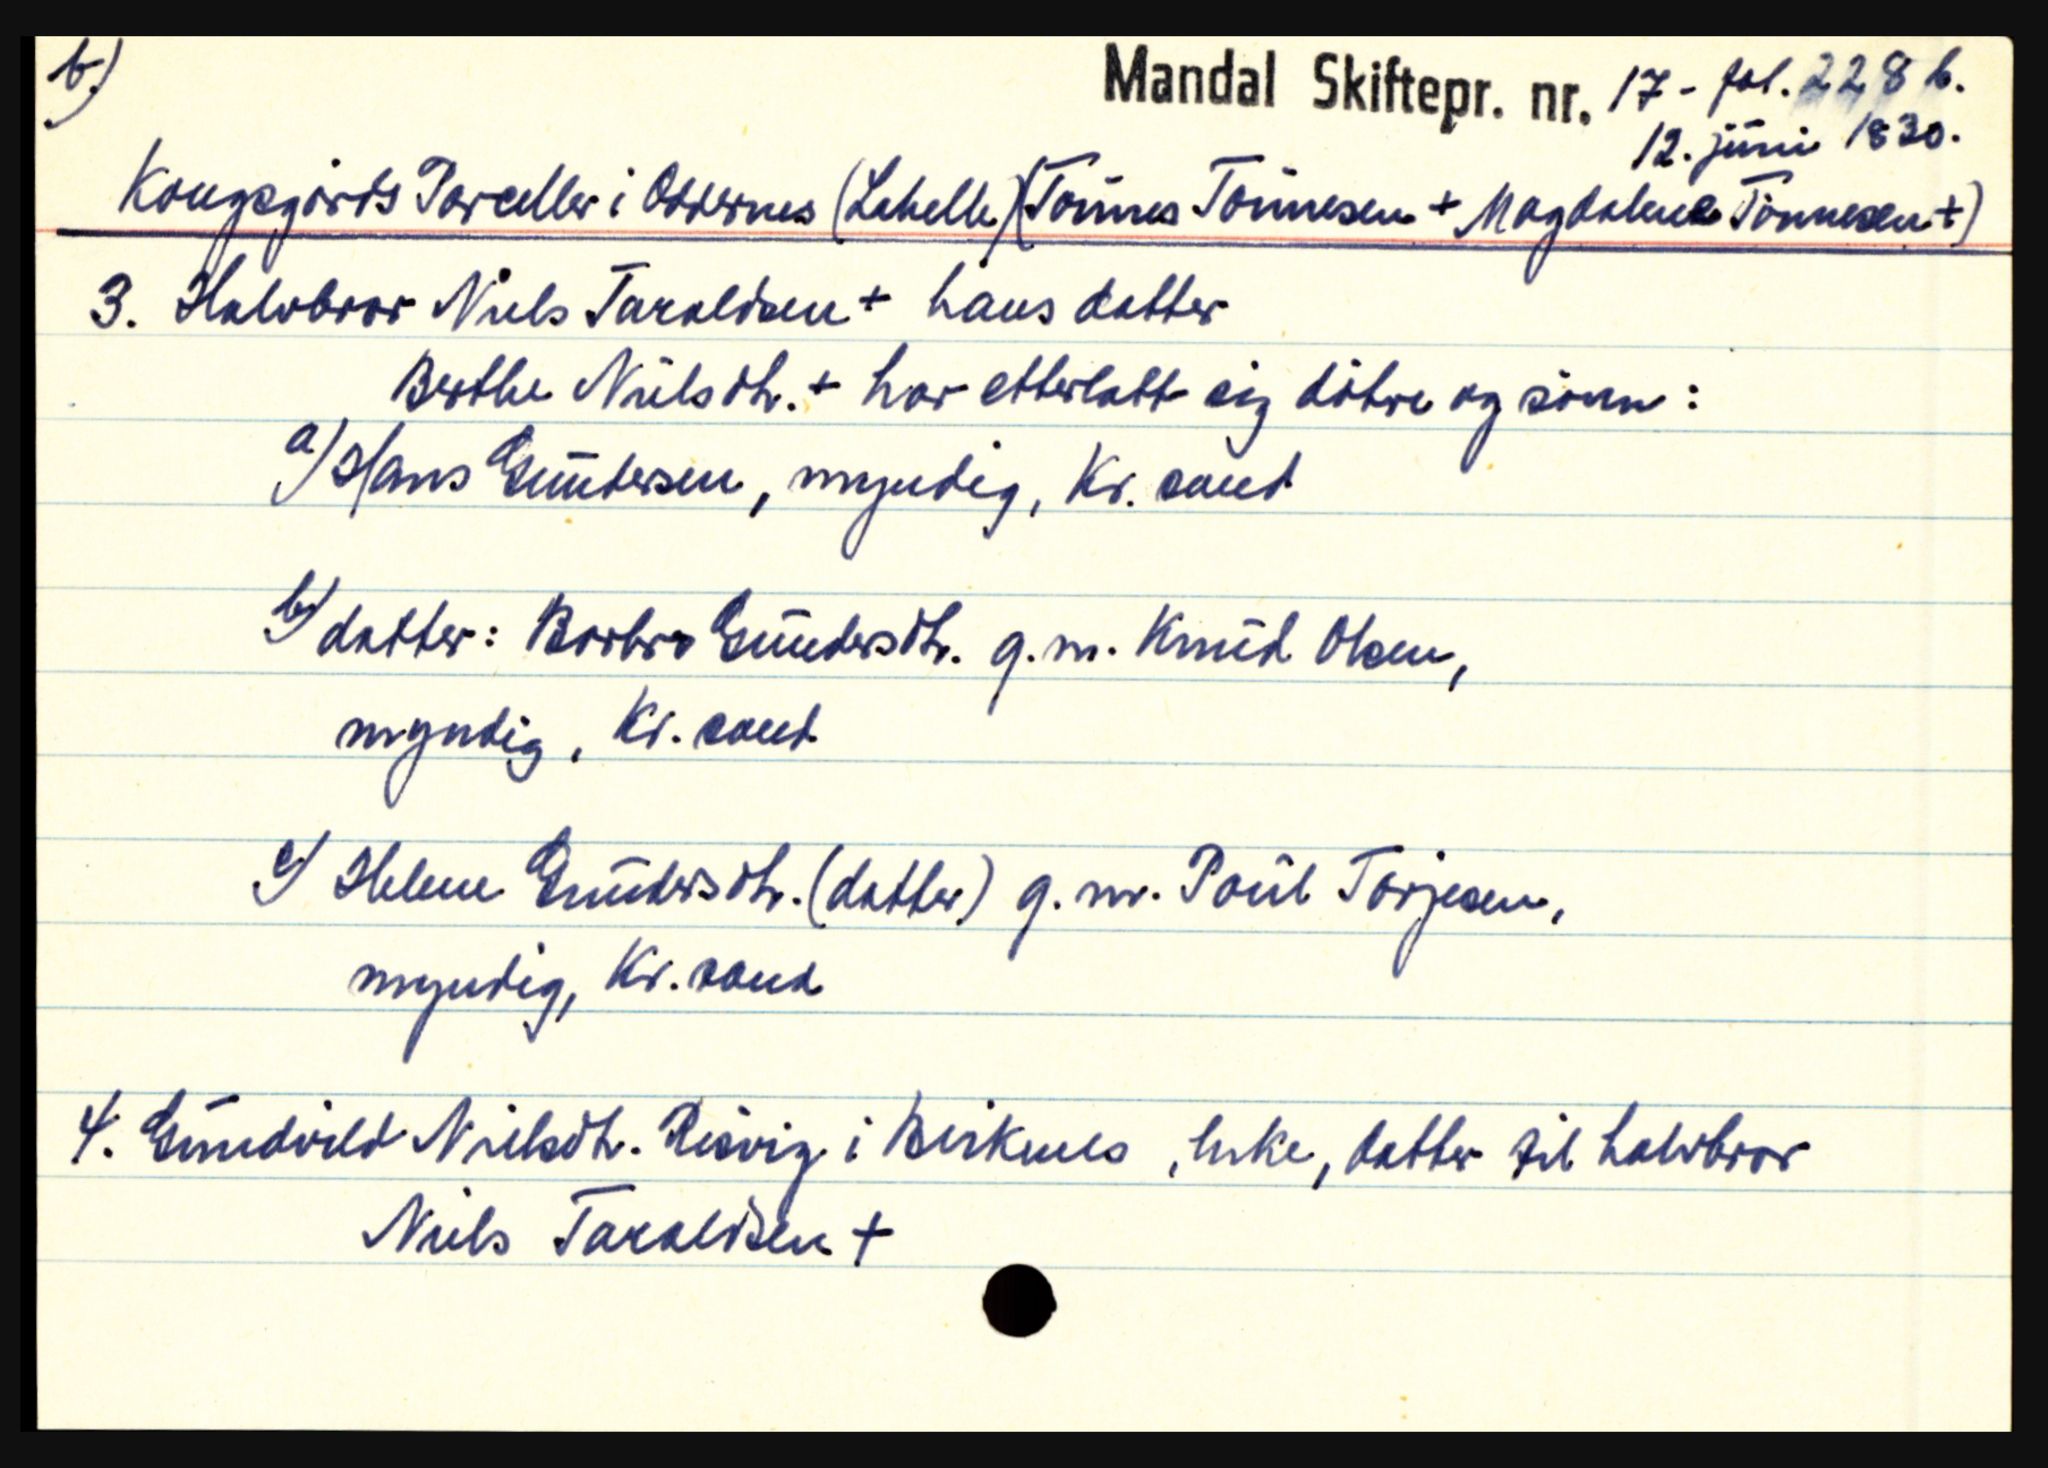 b)
Mandal Skiftepr. nr. 17 - fol. 228 b.
12. juni 1830.
Kongsgårds Parceller i Oddernes (Lahelle) (Tönnes Tönnesen + Magdalene Tönnesen +)
3. Halvbror Niels Taraldsen + hans datter
Berthe Nielsdtr. + har etterlatt sig dötre og sönn:
a) Hans Gundersen, myndig, Kr.sand
b) datter: Barbro Gundersdtr. g.m. Knud Olsen,
myndig, Kr.sand
c) Helene Gundersdtr. (datter) g.m. Poul Torjesen,
myndig, Kr.sand
4. Gundvild Nielsdtr. Risvig i Birkenes, enke, datter til halvbror
Niels Taraldsen +